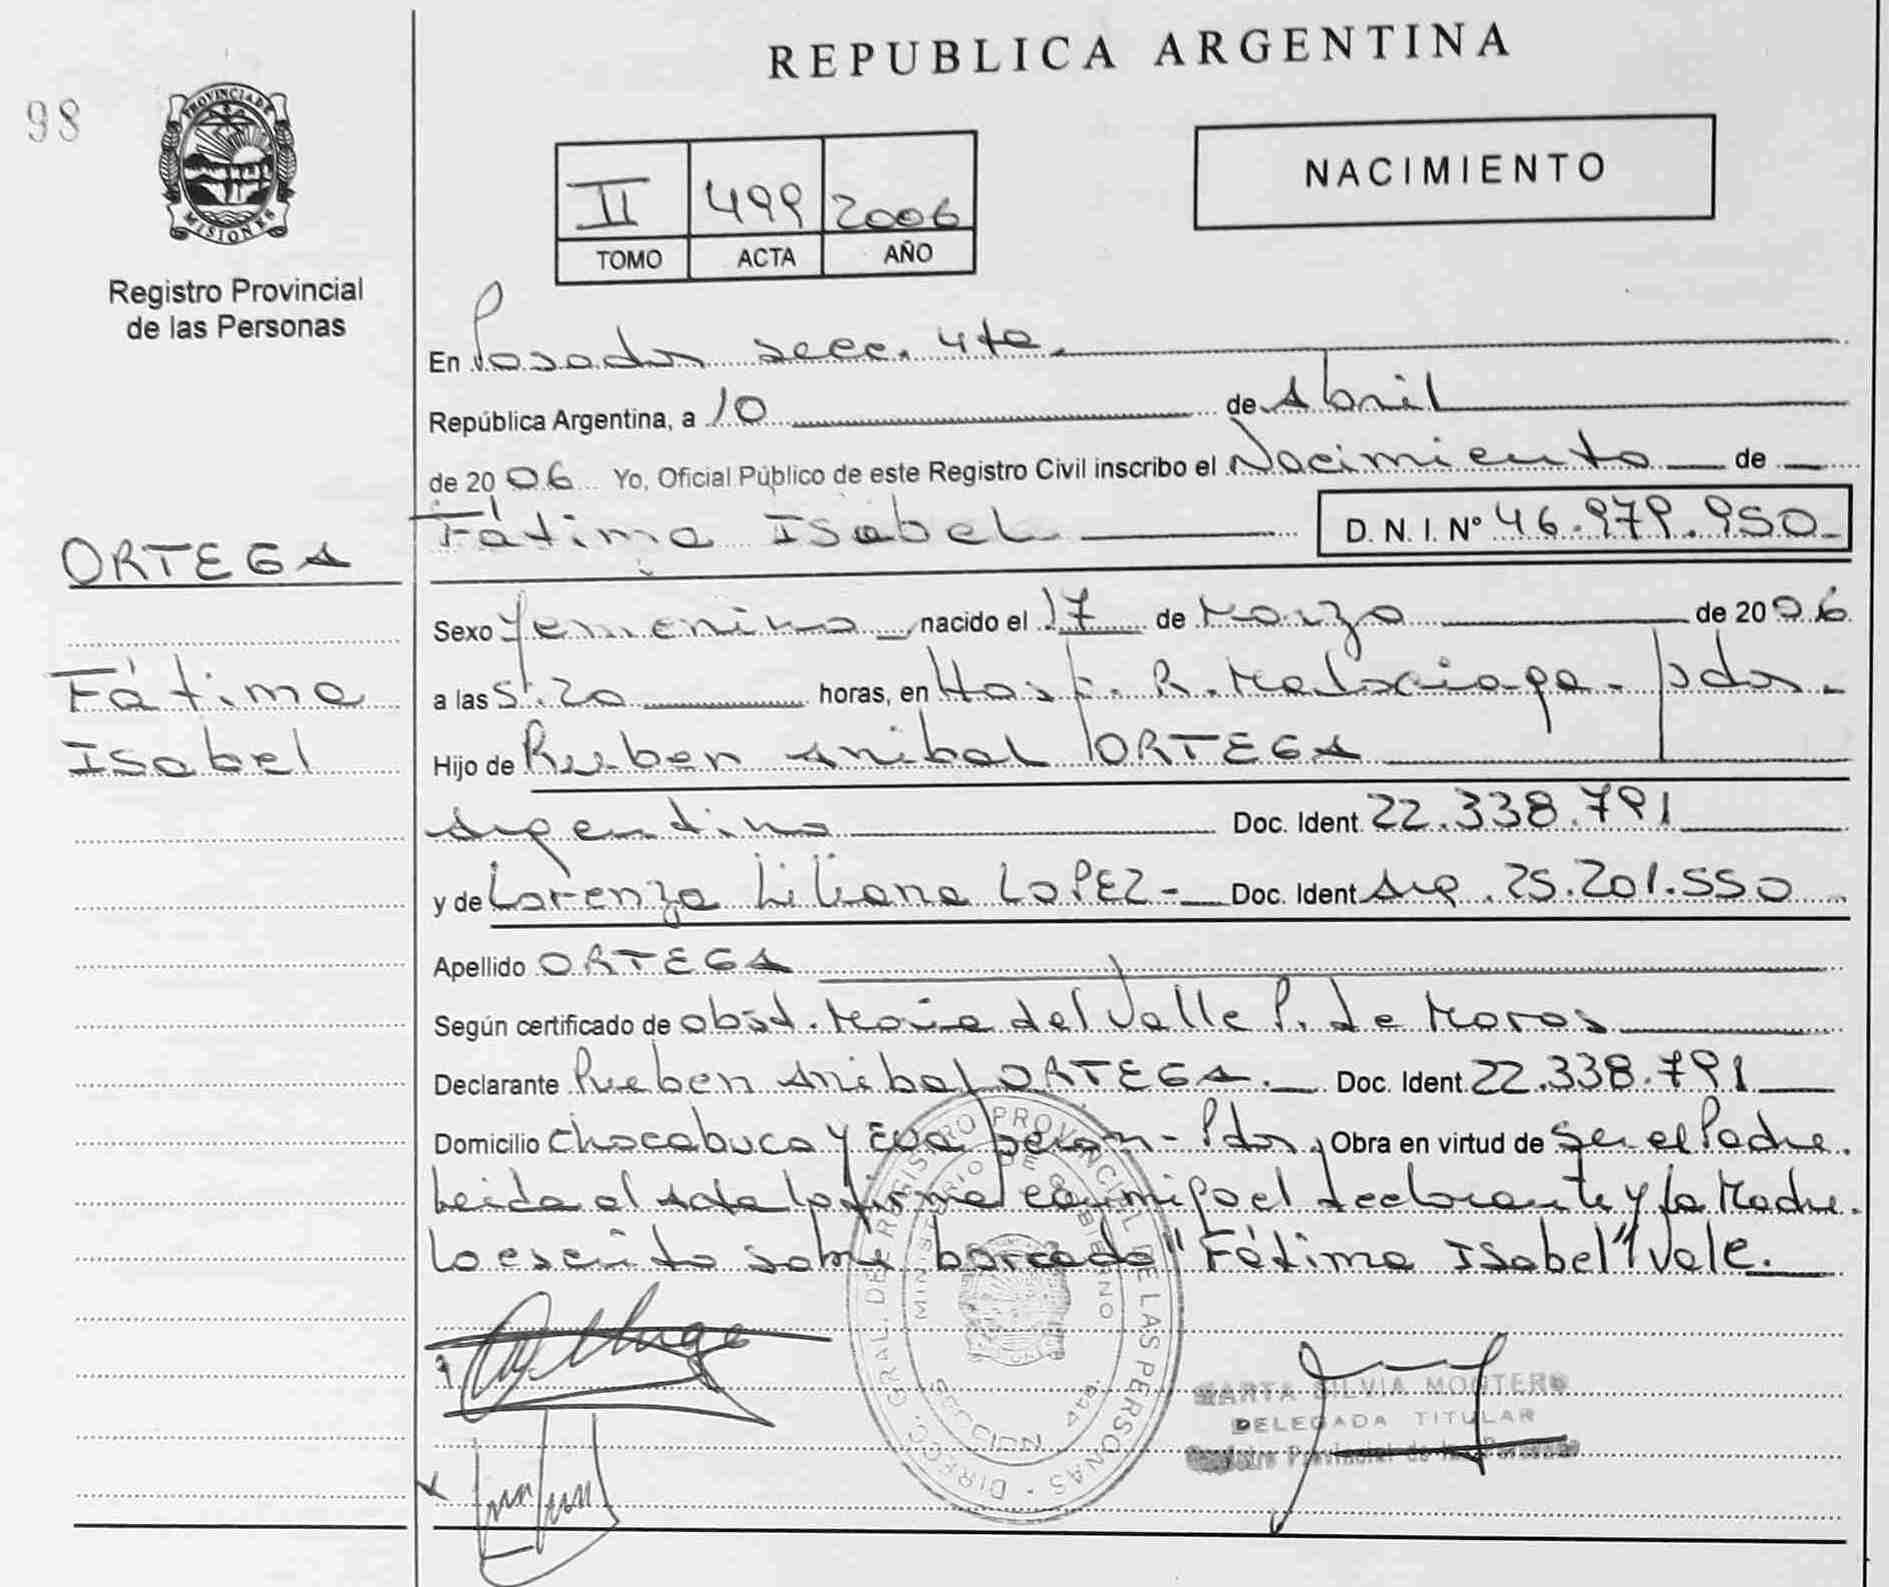 REPUBLICA ARGENTINA
98
PROVINCIA DE
MISIONES
Registro Provincial
de las Personas
II 499 2006
TOMO ACTA AÑO
NACIMIENTO
En Posadas secc. 4ta.
República Argentina, a 10 de Abril
de 2006 Yo, Oficial Público de este Registro Civil inscribo el Nacimiento de
Fátima Isabel D. N. I. Nº 46.979.950
ORTEGA
Sexo Femenino nacido el 17 de Marzo de 2006
Fátima
a las 5:20 horas, en Hosp. R. Madariaga - Pdas.
Isabel
Hijo de Ruben Anibal ORTEGA
Argentino Doc. Ident. 22.338.791
y de Lorenza Liliana LOPEZ- Doc. Ident. Arg. 25.201.550
Apellido ORTEGA
Según certificado de obst. Maria del Valle P. de Moros
Declarante Rueben Anibal ORTEGA. Doc. Ident. 22.338.791
Domicilio Chacabuco y Eva Peron - Pdas, Obra en virtud de Ser el Padre.
Leida el Acta la firma conmigo el declarante y la Madre.
Lo escrito sobre borrado "Fátima Isabel" Vale.
DIRECC. GRAL. DE REGISTRO PROVINCIAL DE LAS PERSONAS
MINISTERIO DE GOBIERNO
SECCION 4ta.
MARTA SILVIA MONTERO
DELEGADA TITULAR
Registro Provincial de las Personas